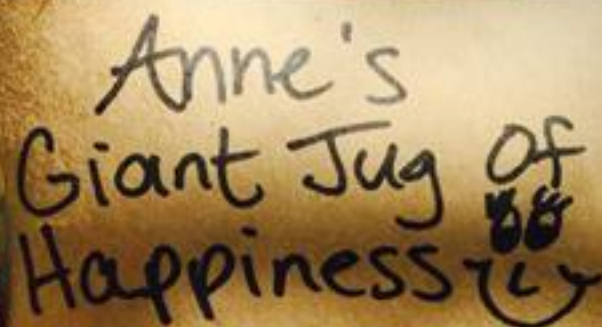 Anne's
Giant Jug Of
Happiness